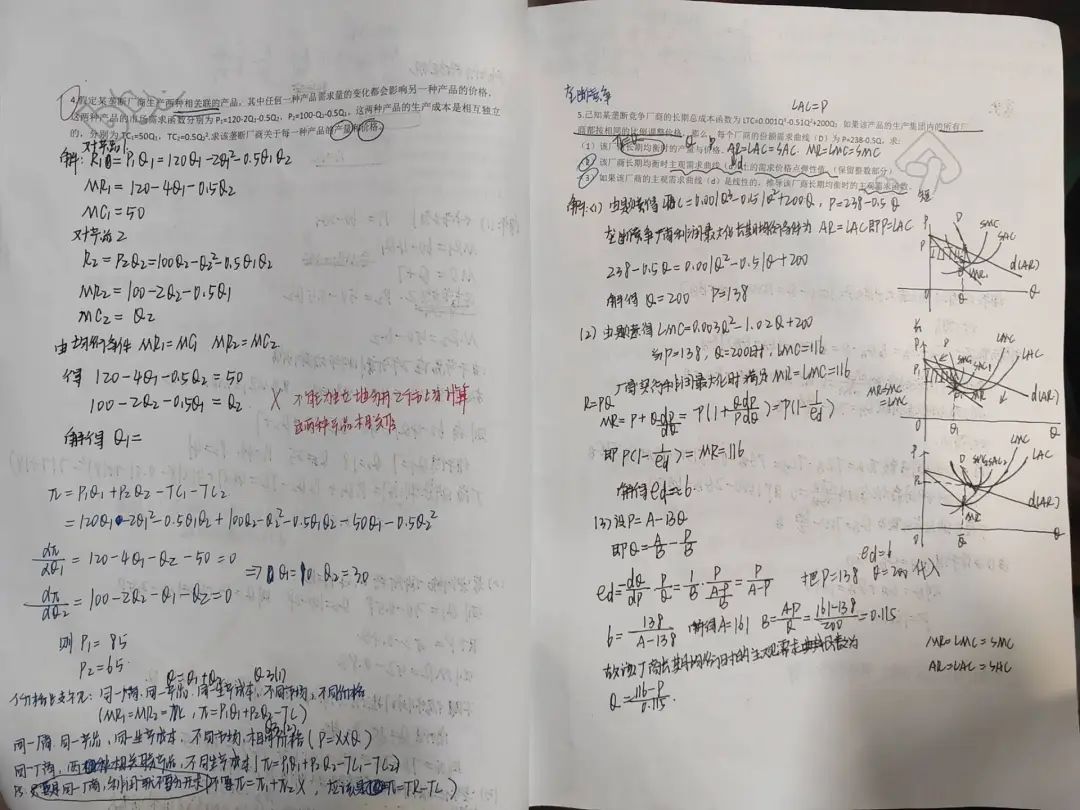 4.假定某垄断厂商生产两种相关联的产品，其中任何一种产品需求量的变化都会影响另一种产品的价格，
这两种产品的市场需求函数分别为 P₁=120-2Q₁-0.5Q₂，P₂=100-Q₂-0.5Q₁。这两种产品的生产成本是相互独立
的，分别为 TC₁=50Q₁，TC₂=0.5Q₂².求该垄断厂商关于每一种产品的产量和价格。
对产品1
解: R₁=P₁Q₁=120Q₁-2Q₁²-0.5Q₁Q₂
MR₁=120-4Q₁-0.5Q₂
MC₁=50
对产品2
R₂=P₂Q₂=100Q₂-Q₂²-0.5Q₁Q₂
MR₂=100-2Q₂-0.5Q₁
MC₂=Q₂
由均衡条件 MR₁=MC₁ MR₂=MC₂
得 120-4Q₁-0.5Q₂=50
100-2Q₂-0.5Q₁=Q₂
X 不能
这两种产品相关
解得 Q₁=
π=P₁Q₁+P₂Q₂-TC₁-TC₂
=120Q₁-2Q₁²-0.5Q₁Q₂+100Q₂-Q₂²-0.5Q₁Q₂-50Q₁-0.5Q₂²
dπ/dQ₁=120-4Q₁-Q₂-50=0
⇒ Q₁=10 Q₂=30
dπ/dQ₂=100-2Q₂-Q₁-Q₂=0
则 P₁=85
P₂=65
Q=Q₁+Q₂
同一厂商.同一产品.同一生产成本，不同市场，不同价格
(MR₁=MR₂=MC, π=P₁Q₁+P₂Q₂-TC)
同一厂商.同一产品，同一生产成本，不同市场.相同价格(P=XXQ)
同一厂商，两种相关联产品，不同生产成本(π=P₁Q₁+P₂Q₂-TC₁-TC₂)
同一厂商，利润就不要分开求(不要π=π₁+π₂X，应该是π=TR-TC)
垄断竞争
LAC=P
5.已知某垄断竞争厂商的长期总成本函数为 LTC=0.001Q³-0.51Q²+200Q；如果该产品的生产集团内的所有厂
商都按相同的比例调整价格，那么，每个厂商的份额需求曲线（D）为 P=238-0.5Q。求：
（1）该厂商长期均衡时的产量与价格。
AR=LAC=SAC. MR=LMC=SMC
（2）该厂商长期均衡时主观需求曲线（d）上的需求价格点弹性值（保留整数部分）
（3）如果该厂商的主观需求曲线（d）是线性的，推导该厂商长期均衡时的主观需求函数。
解:(1) 由题意得 LTC=0.001Q³-0.51Q²+200Q，P=238-0.5Q
垄断竞争厂商利润最大化长期均衡条件为 AR=LAC即P=LAC
238-0.5Q=0.001Q²-0.51Q+200
解得 Q=200 P=138
(2) 由题意得 LMC=0.003Q²-1.02Q+200
当P=138，Q=200时，LMC=116
厂商实行利润最大化时满足MR=LMC=116
R=PQ
MR=P+Q dP/dQ=P(1+QdP/PdQ)=P(1-1/ed)
即P(1-1/ed)=MR=116
解得ed=6.
(3)设P=A-BQ
即Q=A/B-P/B
ed=dQ/dP·P/Q=1/B·P/((A-P)/B)=P/(A-P)
ed=6
把P=138 Q=200代入
6=138/(A-138) 解得A=161 B=(A-P)/Q=(161-138)/200=0.115
故该厂商长期均衡时的主观需求函数为
Q=(161-P)/0.115.
MR=LMC=SMC
AR=LAC=SAC
短
P
D
SMC
SAC
d(AR)
MR
Q
长
P
D
SMC₁
SAC₁
LMC
LAC
d(AR)
MR=SMC
=LMC
Q₁
Q
P
D
SMC₂
SAC₂
LMC
LAC
d(AR)
MR
Q